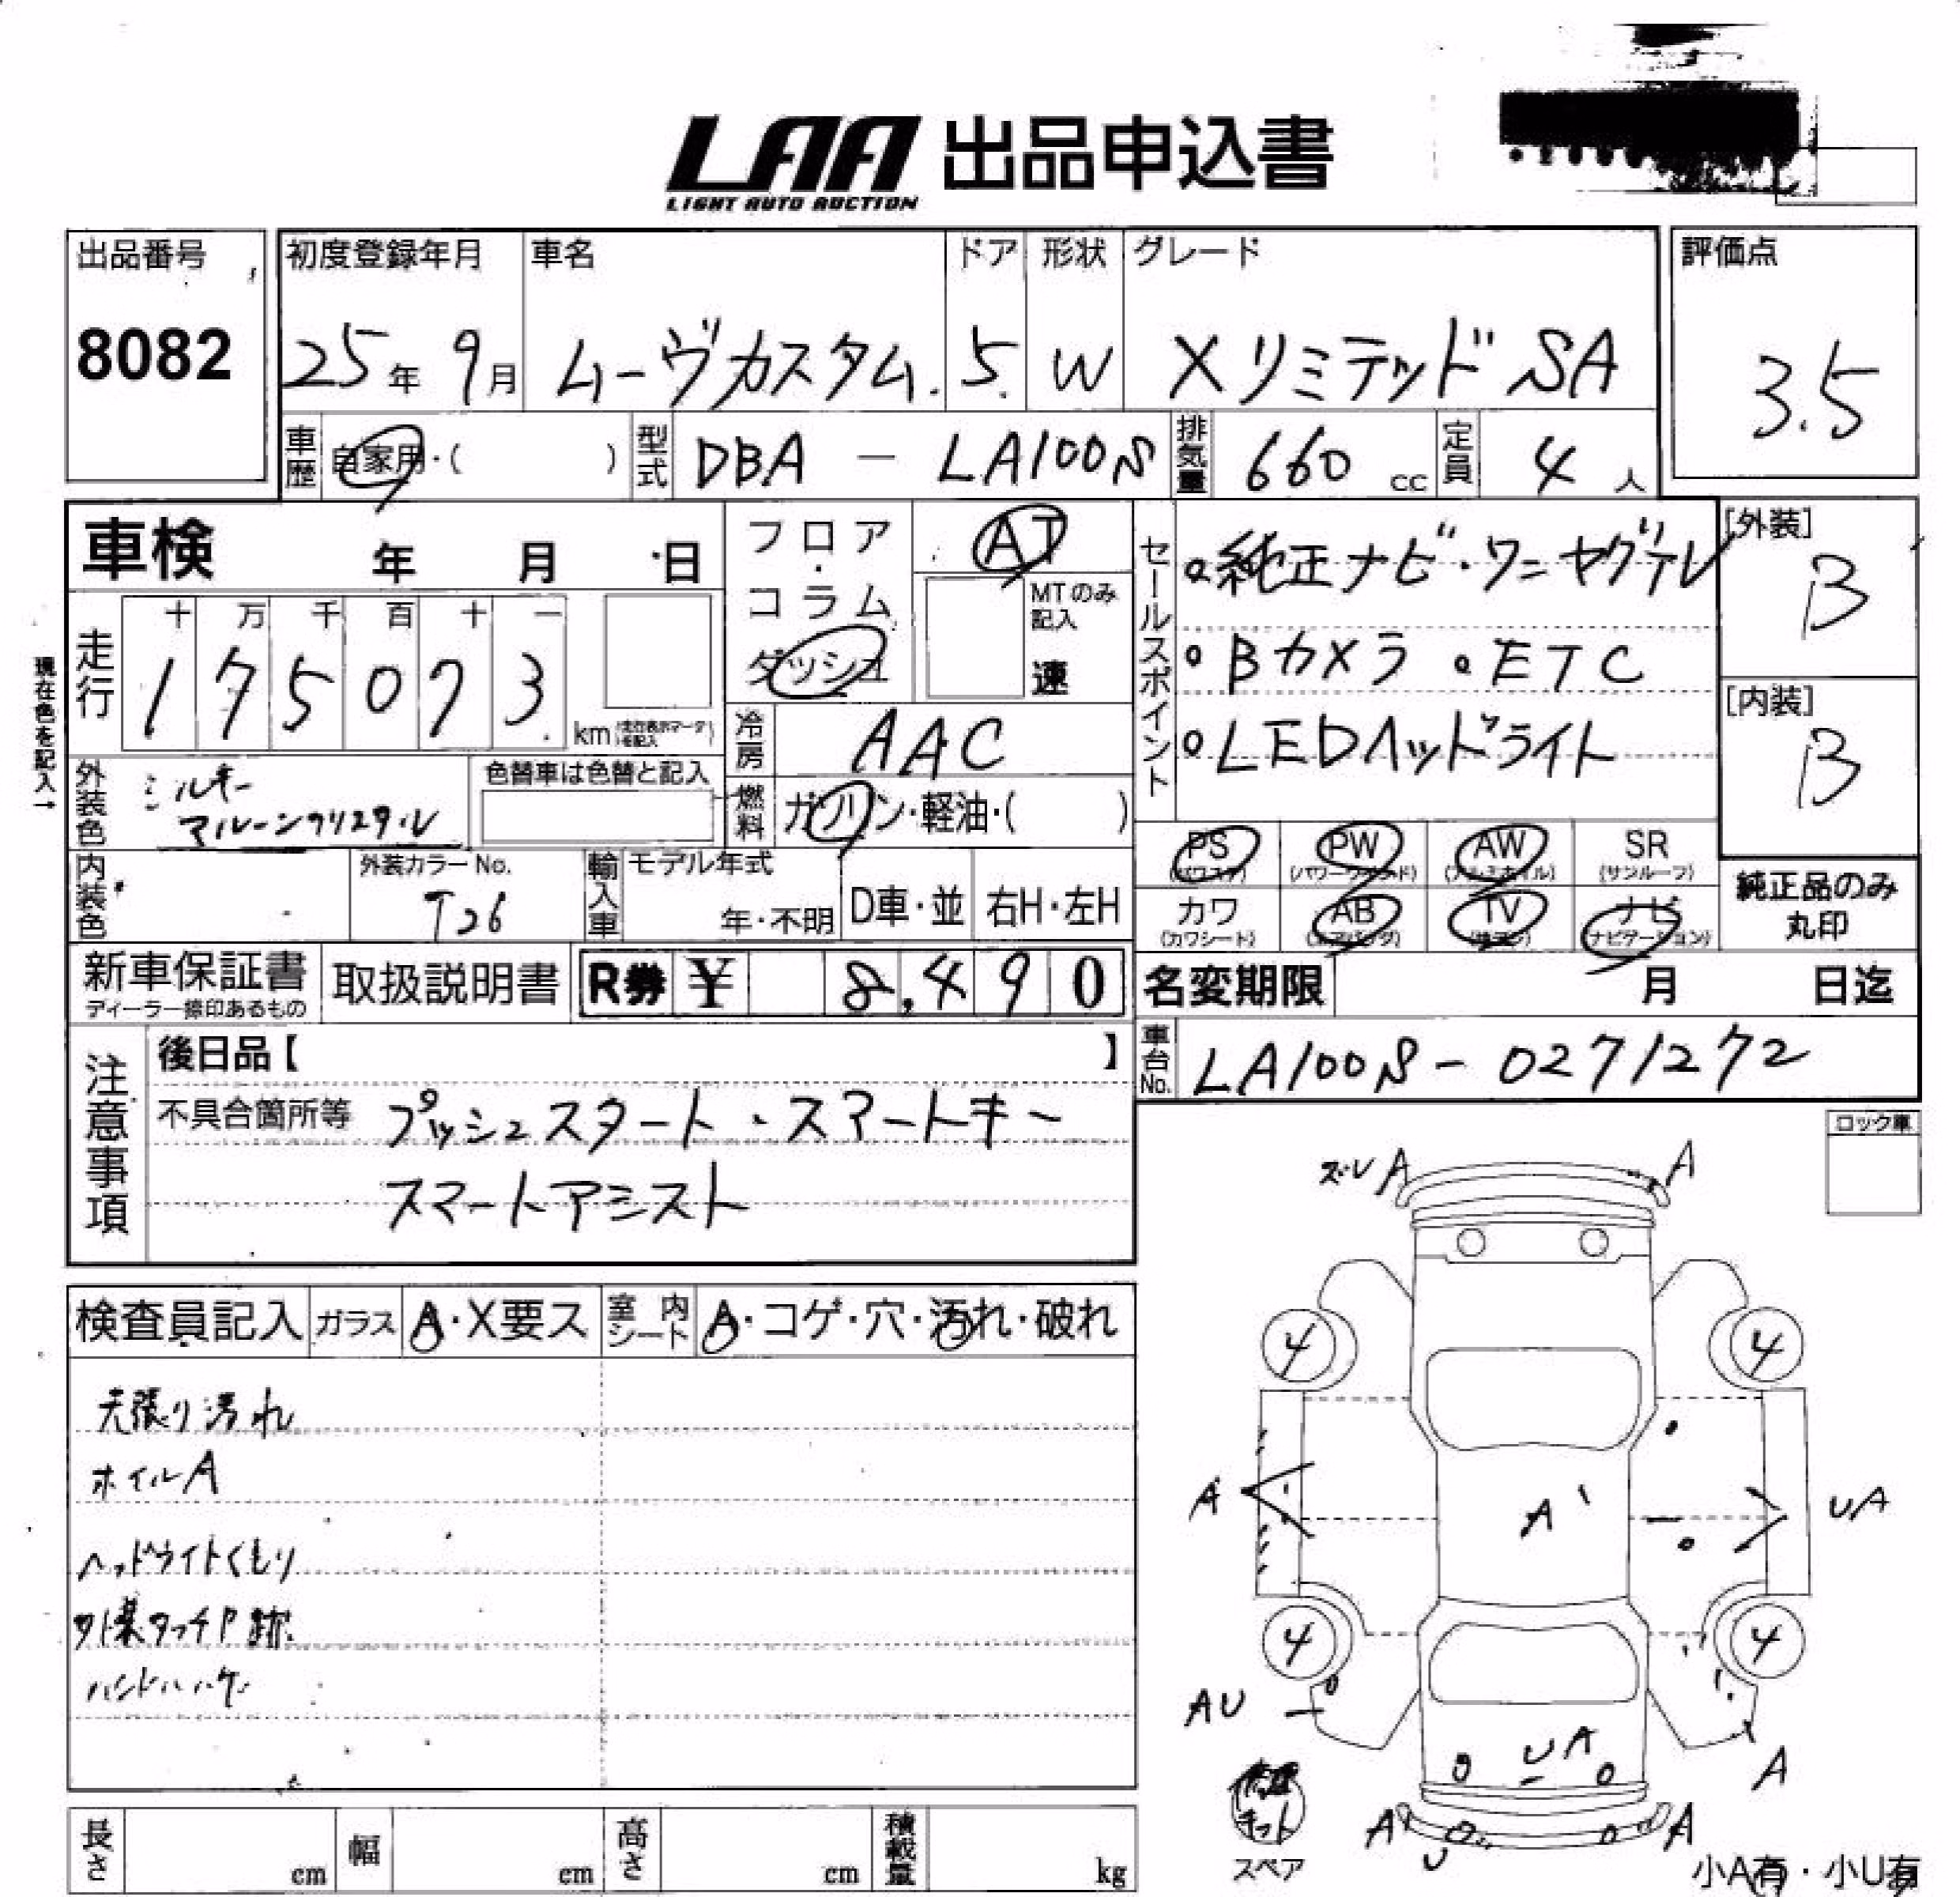 LAA 出品申込書
LIGHT AUTO AUCTION
出品番号 初度登録年月 車名 ドア 形状 グレード 評価点
8082 25年 9月 ムーヴカスタム 5 W Xリミテッド SA 3.5
車歴 自家用・( ) 型式 DBA - LA100S 排気量 660 cc 定員 4 人
車検 年 月 日 フロア・ AT
コラム MTのみ記入
ダッシュ 速
セールスポイント
純正ナビ・ワンセグTV
Bカメラ ・ETC
LEDヘッドライト
[外装] B
[内装] B
現在色を記入→
走行 十 万 千 百 十 一
1 7 5 0 7 3 km (走行表示マータ)を記入
冷房 AAC
外装色 シルキー
マルーンクリスタル
色替車は色替と記入
燃料 ガソリン・軽油・( )
PS PW AW SR
(パワステ) (パワーウインド) (アルミホイル) (サンルーフ)
カワ AB TV ナビ
(カワシート) (エアバッグ) (ナビゲーション)
純正品のみ
丸印
内装色 外装カラーNo. T26
輸入車 モデル年式 年・不明 D車・並 右H・左H
新車保証書 取扱説明書 R券 ¥ 8,490
ディーラー捺印あるもの
名変期限 月 日迄
車台No. LA100S - 0271272
注意事項
後日品【 】
不具合箇所等 プッシュスタート・スマートキー
スマートアシスト
ロック車
検査員記入 ガラス A・X要ス 室内シート A・コゲ・穴・汚れ・破れ
天張り汚れ
ホイルA
ヘッドライトくもり
外装タッチP跡
ハンドルハゲ
ズレA A
4 4
A A UA
4 4
AU
UA A
キット
スペア
A U A
小A有・小U有
長さ cm 幅 cm 高さ cm 積載量 kg